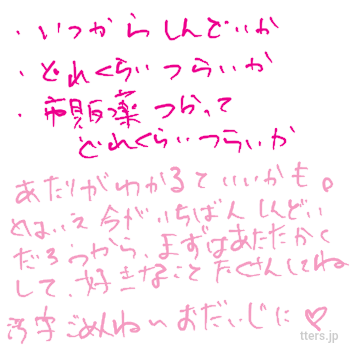 ・いつからしんどいか
・どれくらいつらいか
・市販薬つかって
どれくらいつらいか
あたりがわかるといいかも。
とはいえ今がいちばんしんどい
だろうから、まずはあたたかく
して、好きなことたくさんしてね
汚字ごめんね〜おだいじに♡
tters.jp